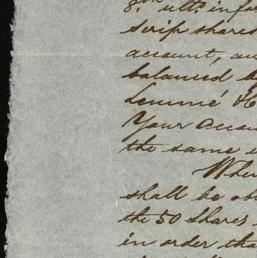 8th ulto. infor
scrip shares
account, an
balanced
Lemmé & C
Your Accou
the same
Whe
shall be ob
the 50 Shares
in order tha